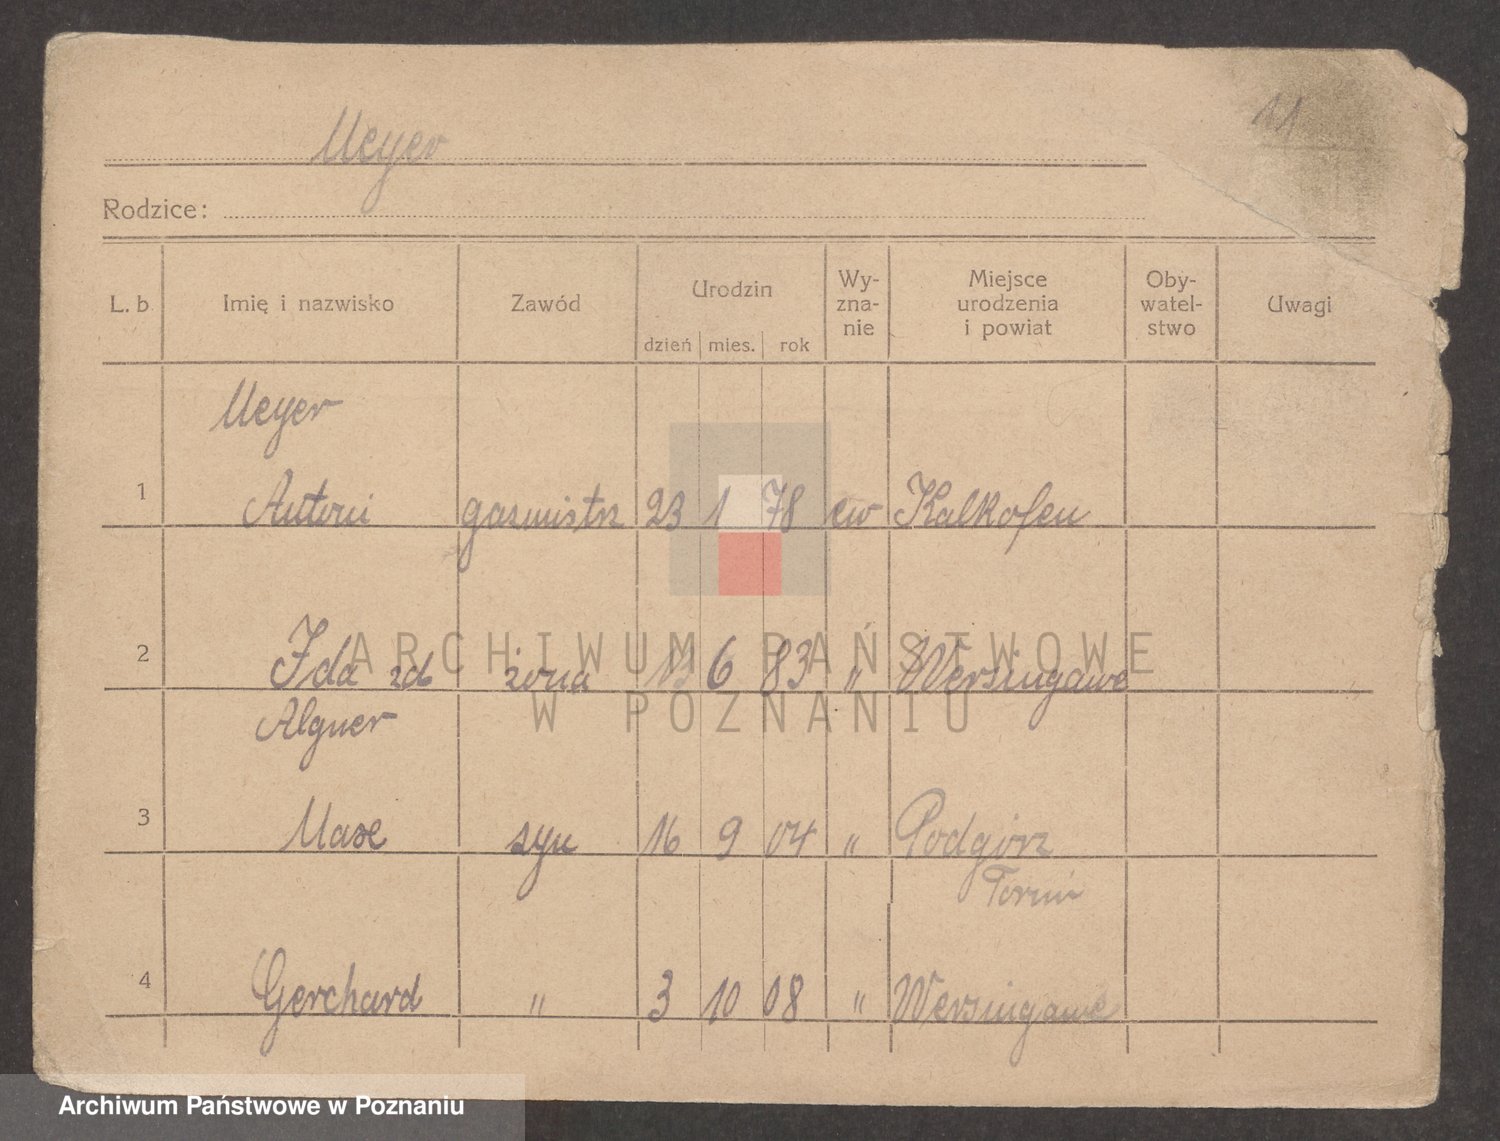 11
Meyer
Rodzice:
L. b Imię i nazwisko Zawód Urodzin Wy- Miejsce Oby- Uwagi
zna- urodzenia watel-
dzień mies. rok nie i powiat stwo
Meyer
1 Antoni gazmistrz 23 1 78 ew Kalkofen
2 Ida zd żona 13 6 83 " Wersingawe
Algner
3 Maxe syn 16 9 04 " Podgórz
Toruń
4 Gerchard " 3 10 08 " Wersingawe
ARCHIWUM PAŃSTWOWE
W POZNANIU
Archiwum Państwowe w Poznaniu